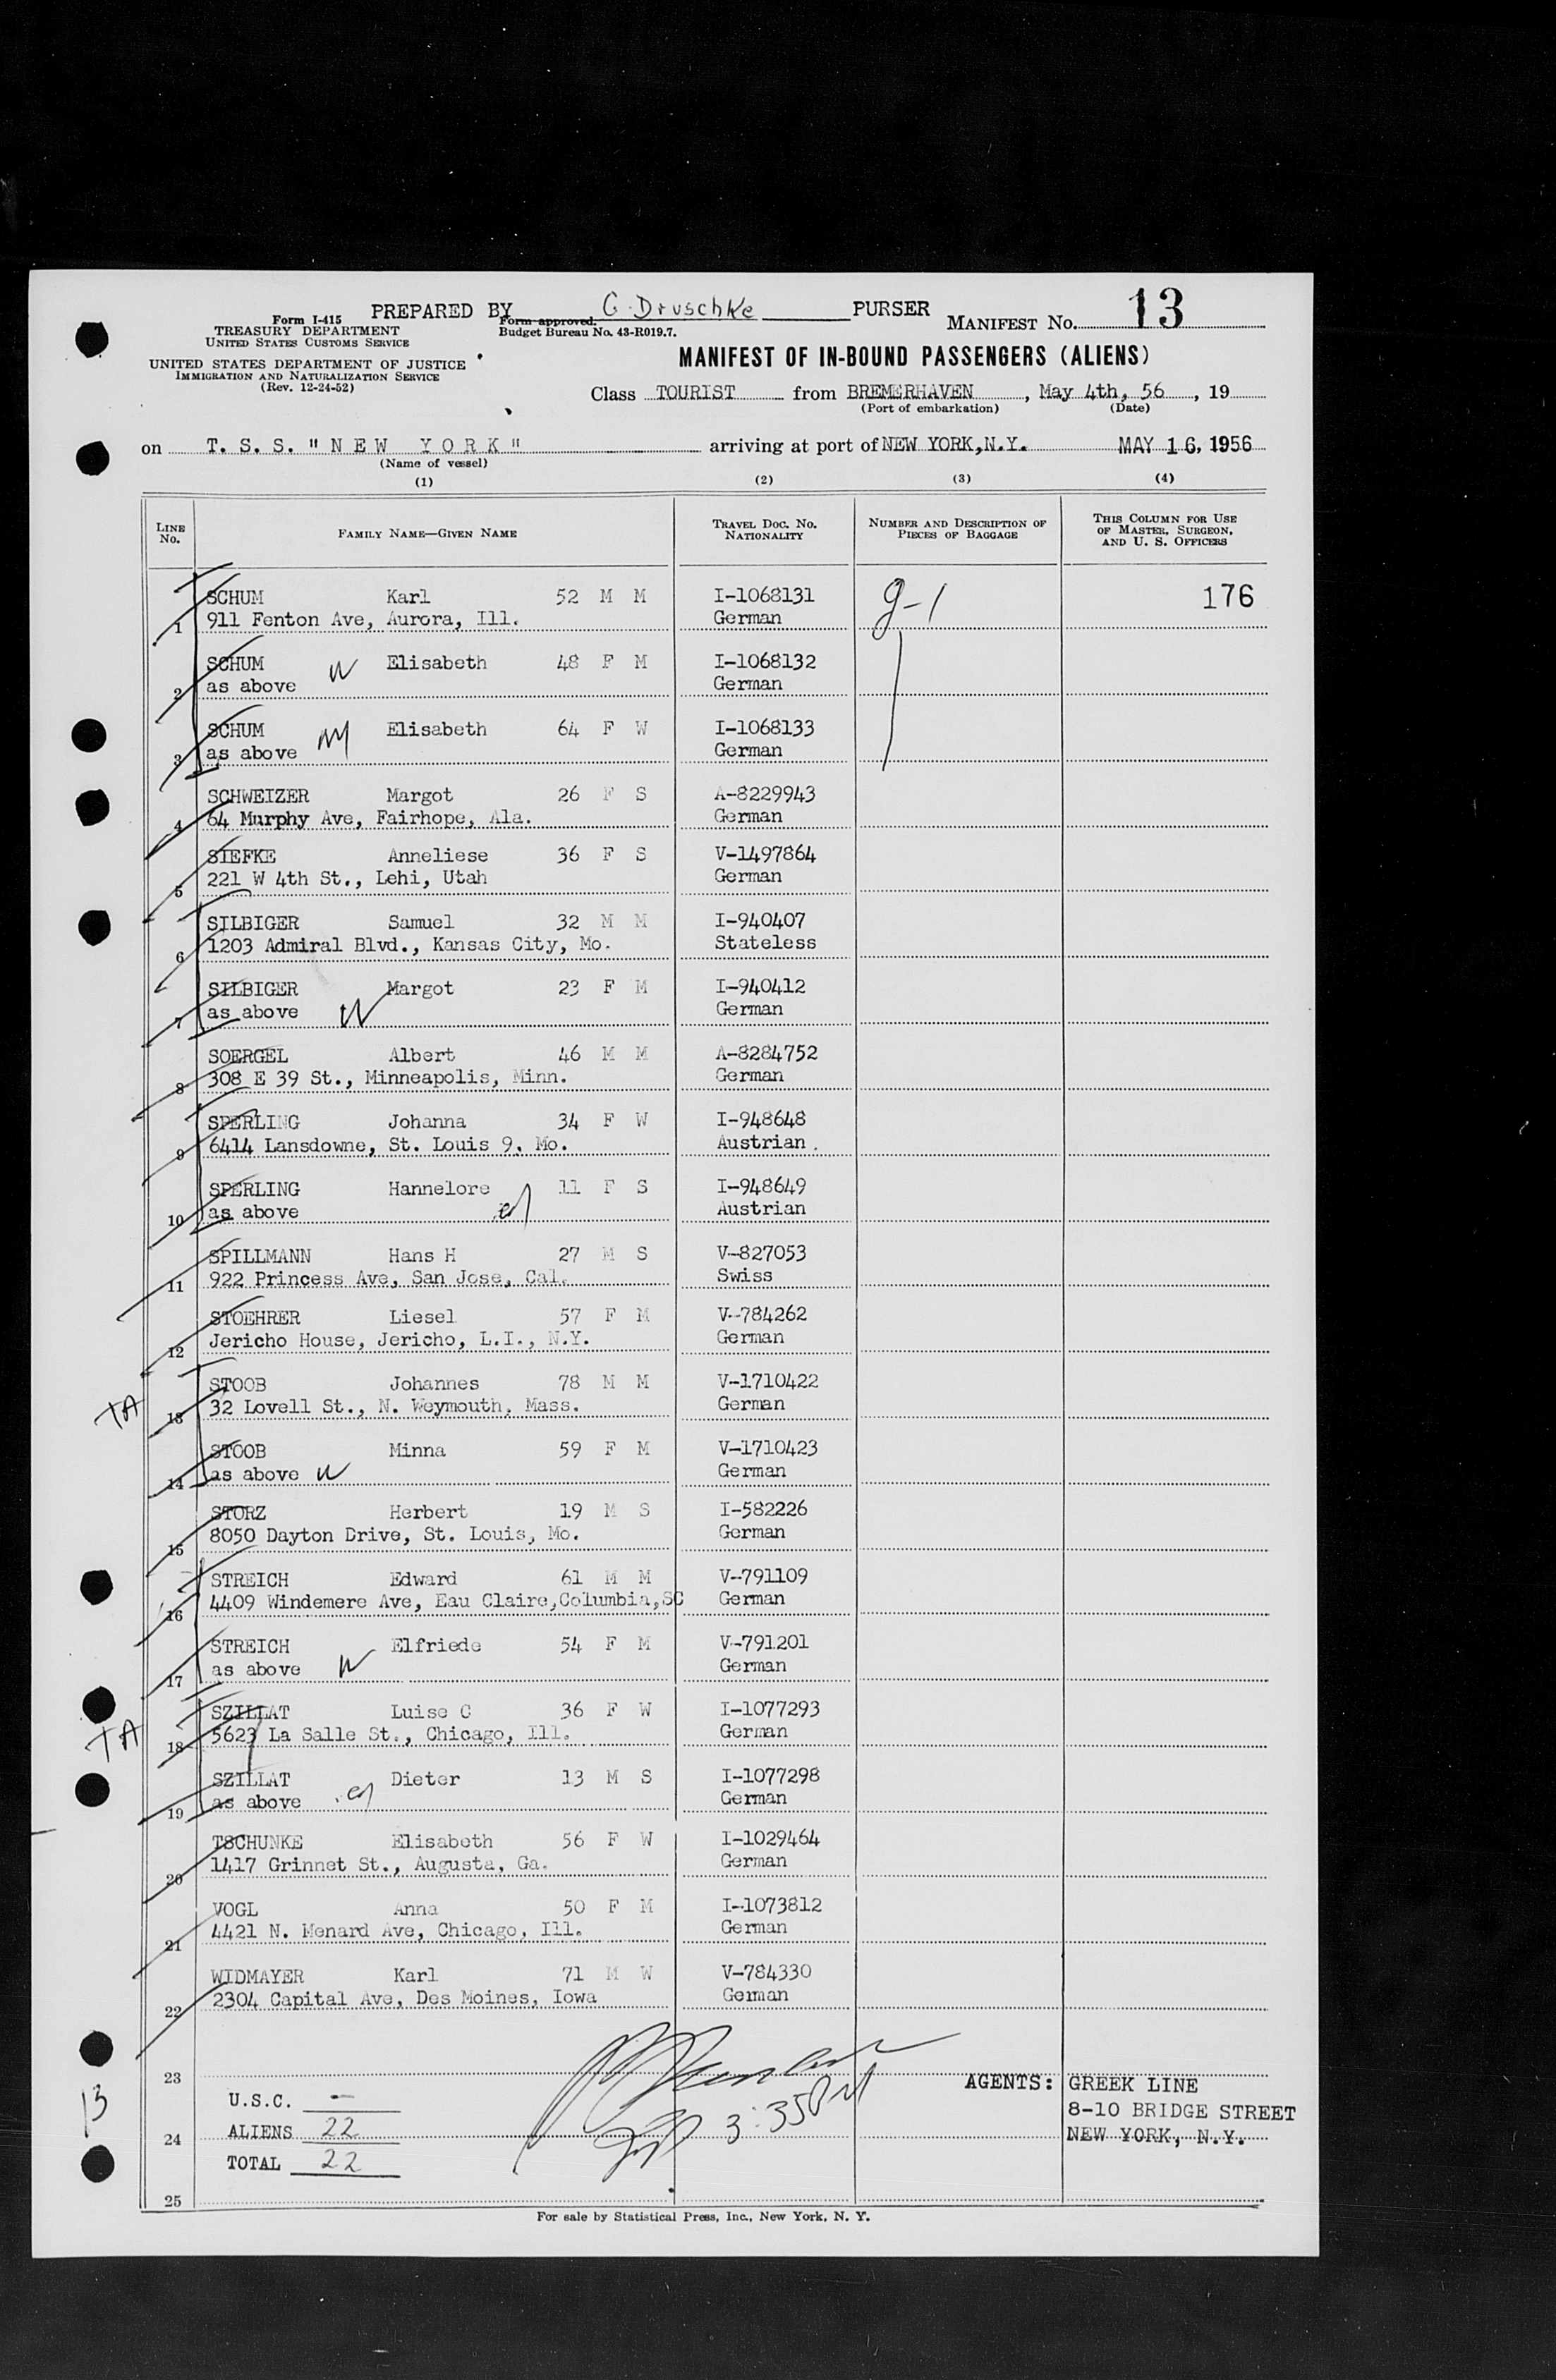 Form I-415 PREPARED BY G. Druschke PURSER
TREASURY DEPARTMENT Form approved. MANIFEST No. 13
UNITED STATES CUSTOMS SERVICE Budget Bureau No. 43-R019.7.
UNITED STATES DEPARTMENT OF JUSTICE MANIFEST OF IN-BOUND PASSENGERS (ALIENS)
IMMIGRATION AND NATURALIZATION SERVICE
(Rev. 12-24-52)
Class TOURIST from BREMERHAVEN, May 4th, 56, 19
(Port of embarkation) (Date)
on T. S. S. "NEW YORK" arriving at port of NEW YORK,N.Y. MAY 16, 1956
(Name of vessel)
(1) (2) (3) (4)
LINE No. FAMILY NAME—GIVEN NAME TRAVEL DOC. No. NATIONALITY NUMBER AND DESCRIPTION OF PIECES OF BAGGAGE THIS COLUMN FOR USE OF MASTER, SURGEON, AND U. S. OFFICERS
SCHUM Karl 52 M M I-1068131 g-1 176
1 911 Fenton Ave, Aurora, Ill. German
SCHUM W Elisabeth 48 F M I-1068132
2 as above German
SCHUM M Elisabeth 64 F W I-1068133
3 as above German
SCHWEIZER Margot 26 F S A-8229943
4 64 Murphy Ave, Fairhope, Ala. German
SIEFKE Anneliese 36 F S V-1497864
5 221 W 4th St., Lehi, Utah German
SILBIGER Samuel 32 M M I-940407
6 1203 Admiral Blvd., Kansas City, Mo. Stateless
SILBIGER Margot 23 F M I-940412
7 as above W German
SOERGEL Albert 46 M M A-8284752
8 308 E 39 St., Minneapolis, Minn. German
SPERLING Johanna 34 F W I-948648
9 6414 Lansdowne, St. Louis 9, Mo. Austrian.
SPERLING Hannelore 11 F S I-948649
10 as above Austrian
SPILLMANN Hans H 27 M S V-827053
11 922 Princess Ave, San Jose, Cal. Swiss
STOEHRER Liesel 57 F M V-784262
12 Jericho House, Jericho, L.I., N.Y. German
STOOB Johannes 78 M M V-1710422
TA 13 32 Lovell St., N. Weymouth, Mass. German
STOOB Minna 59 F M V-1710423
14 as above W German
STORZ Herbert 19 M S I-582226
15 8050 Dayton Drive, St. Louis, Mo. German
STREICH Edward 61 M M V-791109
16 4409 Windemere Ave, Eau Claire,Columbia,SC German
STREICH Elfriede 54 F M V-791201
17 as above W German
SZILLAT Luise C 36 F W I-1077293
TA 18 5623 La Salle St., Chicago, Ill. German
SZILLAT Dieter 13 M S I-1077298
19 as above German
TSCHUNKE Elisabeth 56 F W I-1029464
20 1417 Grinnet St., Augusta, Ga. German
VOGL Anna 50 F M I-1073812
21 4421 N. Menard Ave, Chicago, Ill. German
WIDMAYER Karl 71 M W V-784330
22 2304 Capital Ave, Des Moines, Iowa German
23 AGENTS: GREEK LINE
U.S.C. —
13 8-10 BRIDGE STREET
24 ALIENS 22 3:35PM NEW YORK, N.Y.
TOTAL 22
25
For sale by Statistical Press, Inc., New York, N. Y.